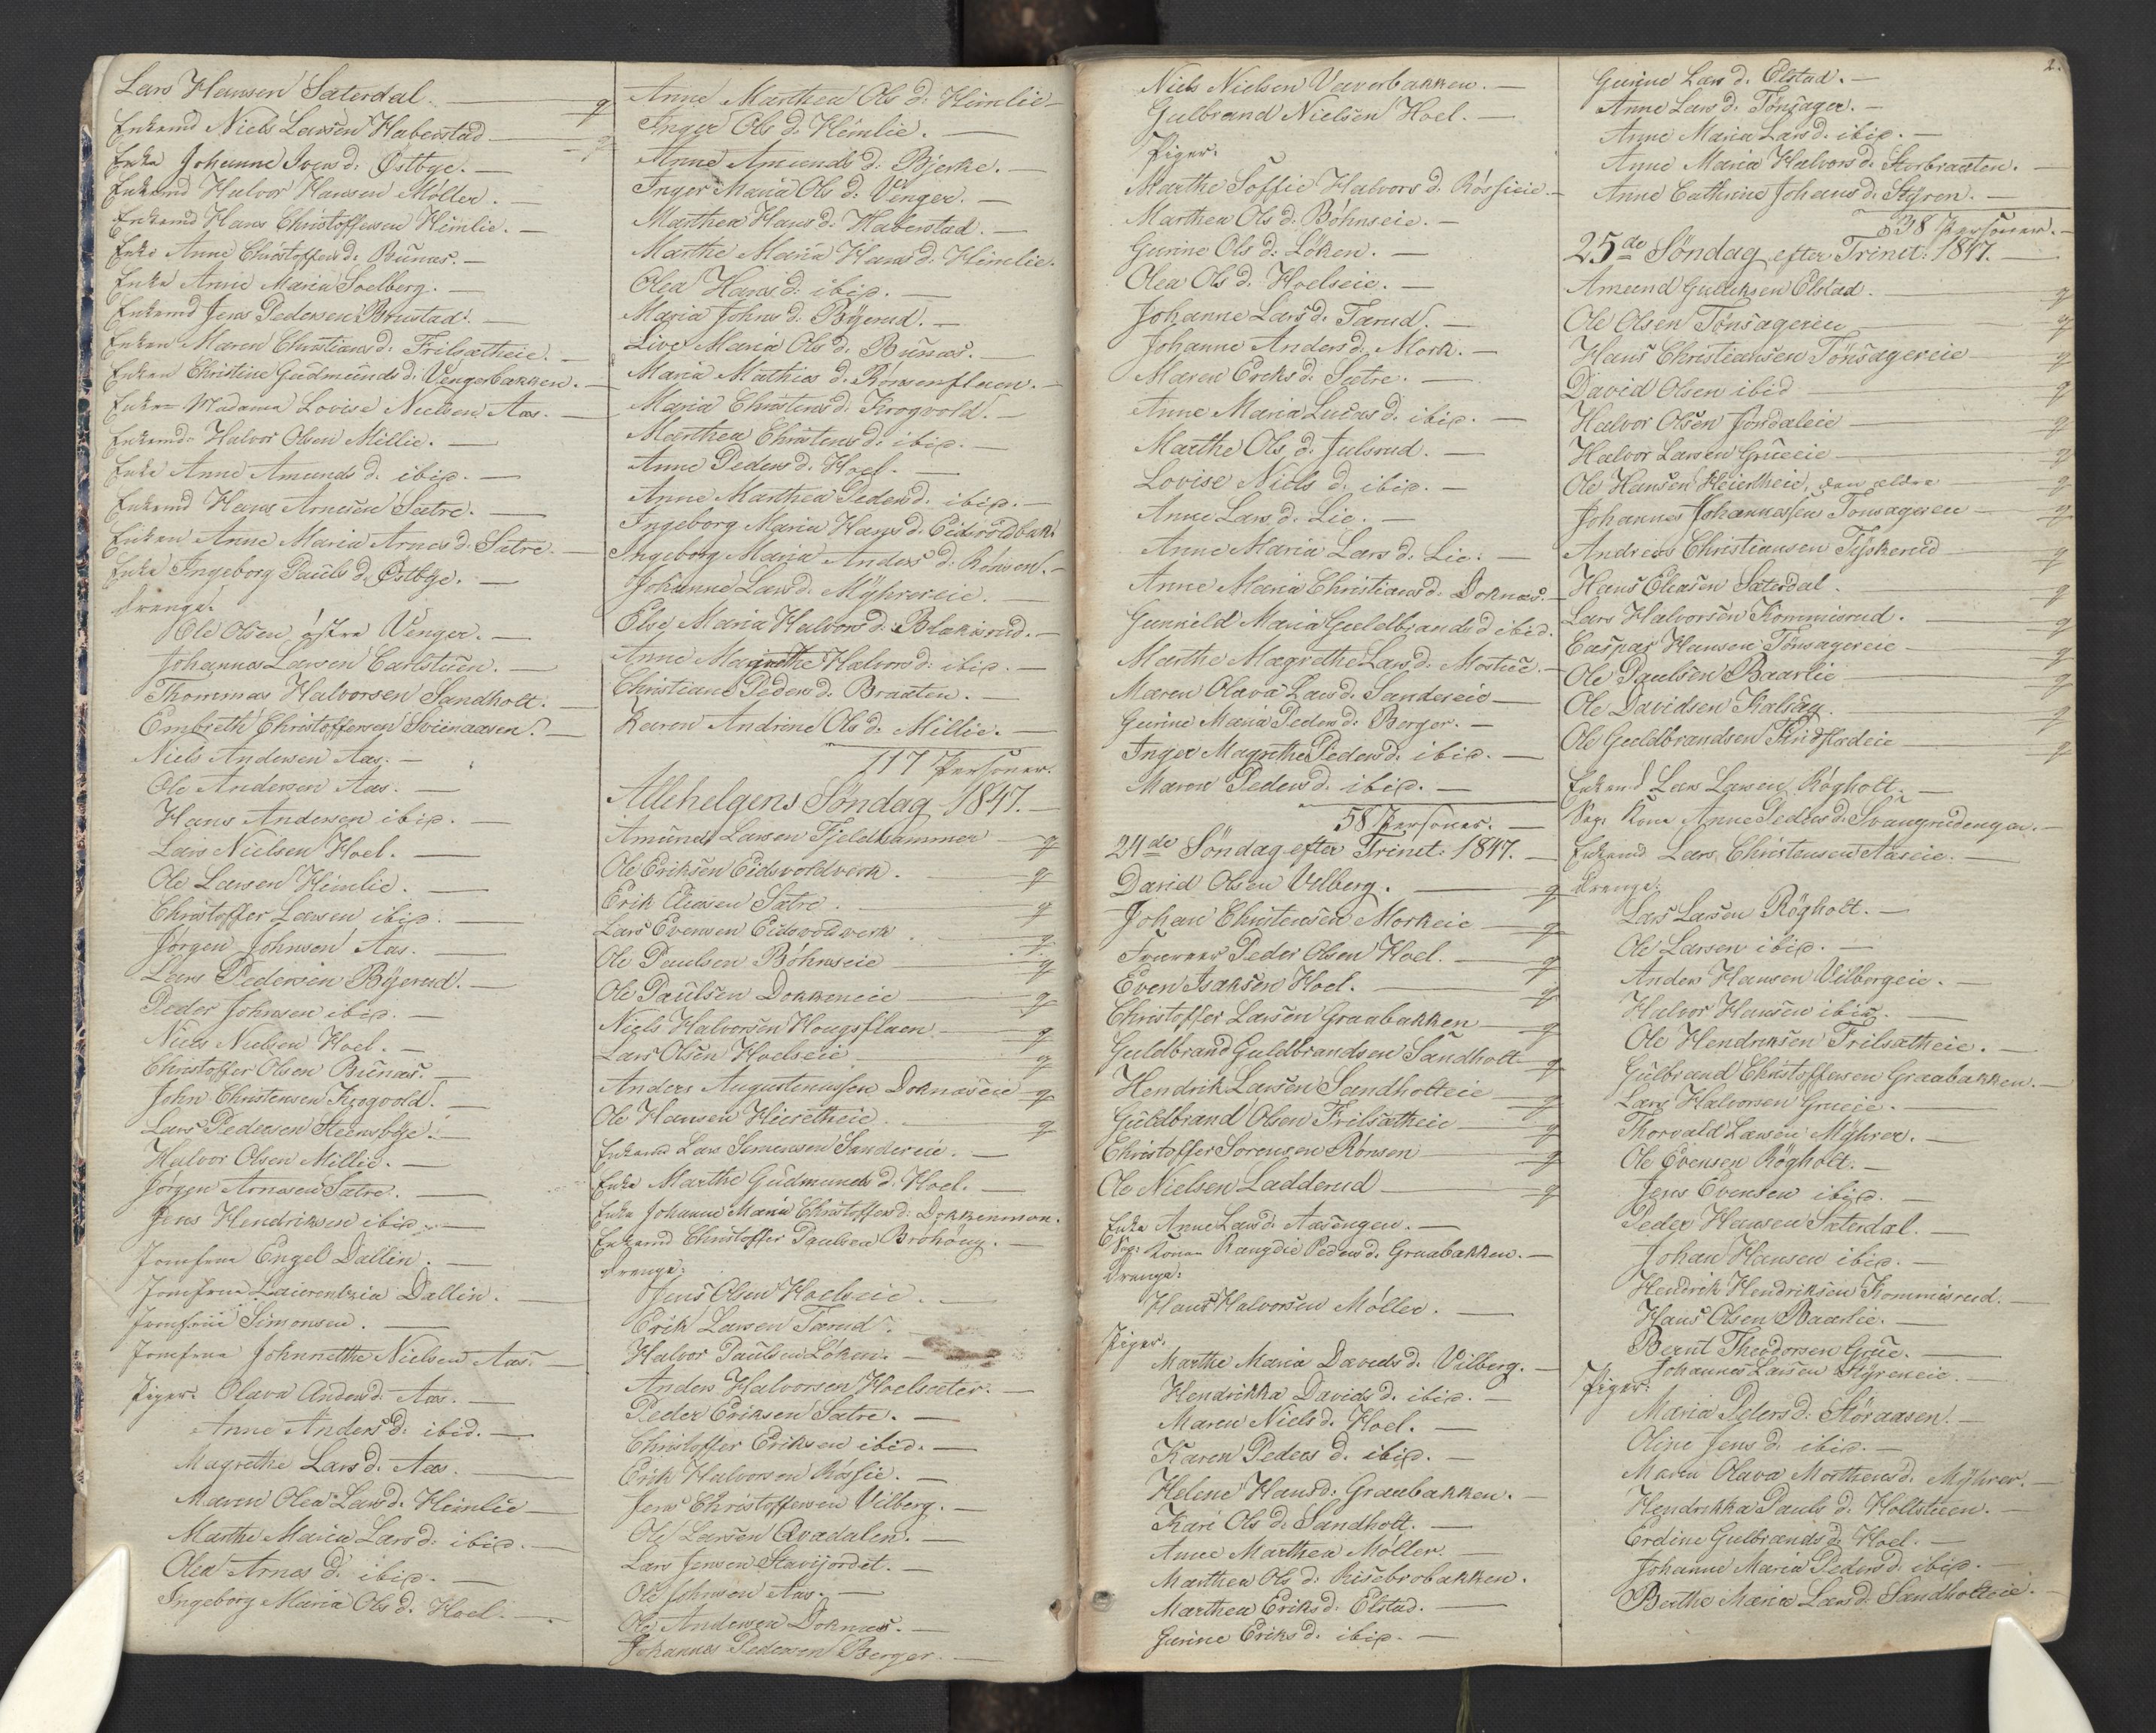 Lars Hansen Saterdal. — q
Enkemd Niels Larsen Haberstad — q
Enke Johanne Ivers d. Østbye. —
Enkemd Halvor Hansen Møller. —
Enkemd Hans Christoffersen Himlie. —
Enke Anne Christoffers d. Bunæs. —
Enke Anne Maria Soelberg. —
Enkemd Jens Pedersen Brustad. —
Enken Maren Christians d. Frilsætheie. —
Enken Christine Gudmunds d. Vengerbakken. —
Enken Madama Lovise Nielsen Aas. —
Enkemd Halvor Olsen Millie. —
Enke Anne Amunds d. ibid. —
Enkemd Hans Arnesen Sætre. —
Enken Anne Maria Arnes d. Sætre. —
Enke Ingeborg Pauls d. Østbye. —
Drenge.
Ole Olsen østre Venger. —
Johannes Larsen Carlstuen. —
Thommas Halvorsen Sandholt. —
Embreth Christoffersen Svenaasen. —
Niels Andersen Aas. —
Ole Andersen Aas. —
Hans Andersen ibid. —
Lars Nielsen Hoel. —
Ole Larsen Himlie. —
Christoffer Larsen ibid. —
Jørgen Johnsen Aas. —
Lars Pedersen Byerud. —
Peder Johnsen ibid. —
Niels Nielsen Hoel. —
Christoffer Olsen Bunæs. —
John Christensen Krogvold. —
Lars Pedersen Steensbye. —
Halvor Olsen Millie. —
Jørgen Arnesen Sætre. —
Jens Hendriksen ibid. —
Jomfrue Engel Dallin. —
Jomfrue Laurentzia Dallin. —
Jomfrue Simonsen. —
Jomfrue Johnnethe Nielsen Aas. —
Piger. Olava Anders d. Aas. —
Anne Anders d. ibid. —
Magrethe Lars d. Aas. —
Maren Olea Lars d. Himlie —
Marthe Maria Lars d. ibid. —
Olea Arnes d. ibid. —
Ingeborg Maria Ols d. Hoel. —
Anne Marthea Ols d. Himlie —
Inger Ols d. Himlie. —
Anne Amunds d. Bjerke. —
Inger Maria Ols d. Venger. —
Marthea Hans d. Haberstad. —
Marthe Maria Hans d. Himlie.
Olea Hans d. ibid. —
Maria Johns d. Byerud. —
Live Maria Ols d. Bunæs. —
Maria Mathias d. Rønsenflaen. —
Maria Christens d. Krogvold. —
Marthea Christens d. ibid. —
Anne Peders d. Hoel. —
Anne Marthea Peders d. ibid. —
Ingeborg Maria Hans d. Eidsvoldbak.
Ingeborg Maria Anders d. Rønsen. —
Johanne Lars d. Myhrereie. —
Else Maria Halvors d. Blakisrud. —
Anne Magrethe Halvors d. ibid. —
Christiane Peders d. Braaten. —
Karen Andrine Ols d. Millie. —
117 Personer.
Allehelgens Søndag 1847. —
Amund Larsen Fjeldhammer — q
Ole Eriksen Eidsvoldverk. — q
Erik Eliasen Sætre. — q
Lars Evensen Eidsvoldverk. — q
Ole Paulsen Bøhnseie — q
Ole Paulsen Dokkeneie — q
Niels Halvorsen Hougsflaen — q
Lars Olsen Hoelseie — q
Anders Augustenussen Doknæseie — q
Ole Hansen Hieretheie — q
Enkemd Lars Simensen Sandereie. —
Enke Marthe Gudmunds d. Hoel. —
Enke Johanne Maria Christoffers d. Dokkenmoen.
Enkemd Christoffer Paulsen Brøhøug. —
Drenge:
Jens Olsen Hoelseie. —
Erik Larsen Tærud. —
Halvor Paulsen Løken. —
Anders Halvorsen Hoelsæter. —
Peder Eriksen Sætre. —
Christoffer Eriksen ibid. —
Erik Halvorsen Røssie. —
Jens Christoffersen Vilberg. —
Ole Larsen Qvædalen. —
Lars Jensen Stavijordet. —
Ole Johnsen Aas. —
Ole Andersen Doknæs. —
Johannes Pedersen Berger. —
Niels Nielsen Væverbakken. —
Gulbrand Nielsen Hoel. —
Piger.
Marthe Soffie Halvors d. Røssieie. —
Marthea Ols d. Bøhnseie. —
Gurine Ols d. Løken. —
Olea Ols d. Hoelseie. —
Johanne Lars d. Tærud. —
Johanne Anders d. Mork. —
Maren Eriks d. Sætre. —
Anne Maria Lucas d. ibid. —
Marthe Ols d. Julsrud. —
Lovise Niels d. ibid. —
Anne Lars d. Lie. —
Anne Maria Lars d. Lie. —
Anne Maria Christians d. Doknæs. —
Gunnild Maria Guldbrands d. ibid.
Marthe Magrethe Lars d. Mostue. —
Maren Olava Lars d. Sandereie —
Gurine Maria Peders d. Berger. —
Inger Magrethe Peders d. ibid. —
Maren Peders d. ibid. —
58 Personer. —
24de Søndag efter Trinit: 1847. —
David Olsen Vilberg. — q
Johan Christensen Morkeie — q
Peder Olsen Hoel. — q
Even Isaksen Hoel. — q
Christoffer Larsen Graabakken — q
Guldbrand Guldbrandsen Sandholt — q
Hendrik Larsen Sandholteie — q
Guldbrand Olsen Frilsætheie — q
Christoffer Sørensen Rønsen — q
Ole Nielsen Ladderud — q
Enke Anne Lars d. Aasengen. —
Sep: Konen Rangdie Peders d. Graabakken. —
Drenge:
Hans Halvorsen Møller. —
Piger.
Marthe Maria Davids d. Vilberg. —
Hendrikka Davids d. ibid. —
Maren Niels d. Hoel. —
Karen Peders d. ibid. —
Helene Hans d. Graabakken. —
Kari Ols d. Sandholt. —
Anne Marthea Møller. —
Marthea Ols d. Risebrobakken.
Marthea Eriks d. Elstad. —
Gurine Eriks d. ibid. —
2.
Gurine Lars d. Elstad. —
Anne Lars d. Tønsager. —
Anne Maria Lars d. ibid. —
Anne Maria Halvors d. Storbraaten. —
Anne Cathrine Johans d. Styren. —
38 Personer. —
25de Søndag efter Trinit: 1847. —
Amund Gulliksen Elstad. — q
Ole Olsen Tønsagereie — q
Hans Christiansen Tønsagereie — q
David Olsen ibid — q
Halvor Olsen Jondaleie — q
Halvor Larsen Grueeie — q
Ole Hansen Heiertheie, den ældre — q
Johannes Johannessen Tønsagereie — q
Andreas Christiansen Tyskerud — q
Hans Eliasen Saterdal. — q
Lars Halvorsen Kommisrud. — q
Caspar Hansen Tønsagereie — q
Ole Paulsen Baarlie — q
Ole Davidsen Kalsæg. — q
Ole Guldbrandsen Findsladeie — q
Enkemd Lars Larsen Røgholt. —
Sep: Kone Anne Peders d. Svangrudengen. —
Enkemd Lars Christensen Aaseie. —
Drenge:
Lars Larsen Røgholt. —
Ole Larsen ibid. —
Anders Hansen Vilbergeie. —
Halvor Hansen ibid. —
Ole Hendriksen Frilsætheie. —
Gulbrand Christoffersen Graabakken. —
Lars Halvorsen Grueie. —
Thorvald Larsen Myhrer. —
Ole Evensen Røgholt. —
Jens Evensen ibid. —
Peder Hansen Saterdal. —
Johan Hansen ibid. —
Hendrik Hendriksen Kommisrud. —
Hans Olsen Baarlie. —
Bernt Theodorsen Grue. —
Johannes Larsen Styreneie. —
Piger:
Maria Peders d. Støraasen. —
Oline Jens d. ibid. —
Maren Olava Morthens d. Myhrer. —
Hendrikka Pauls d. Hollstuen. —
Erdine Gulbrands d. Hoel. —
Johanne Maria Peders d. ibid. —
Berthe Maria Lars d. Sandholteie. —